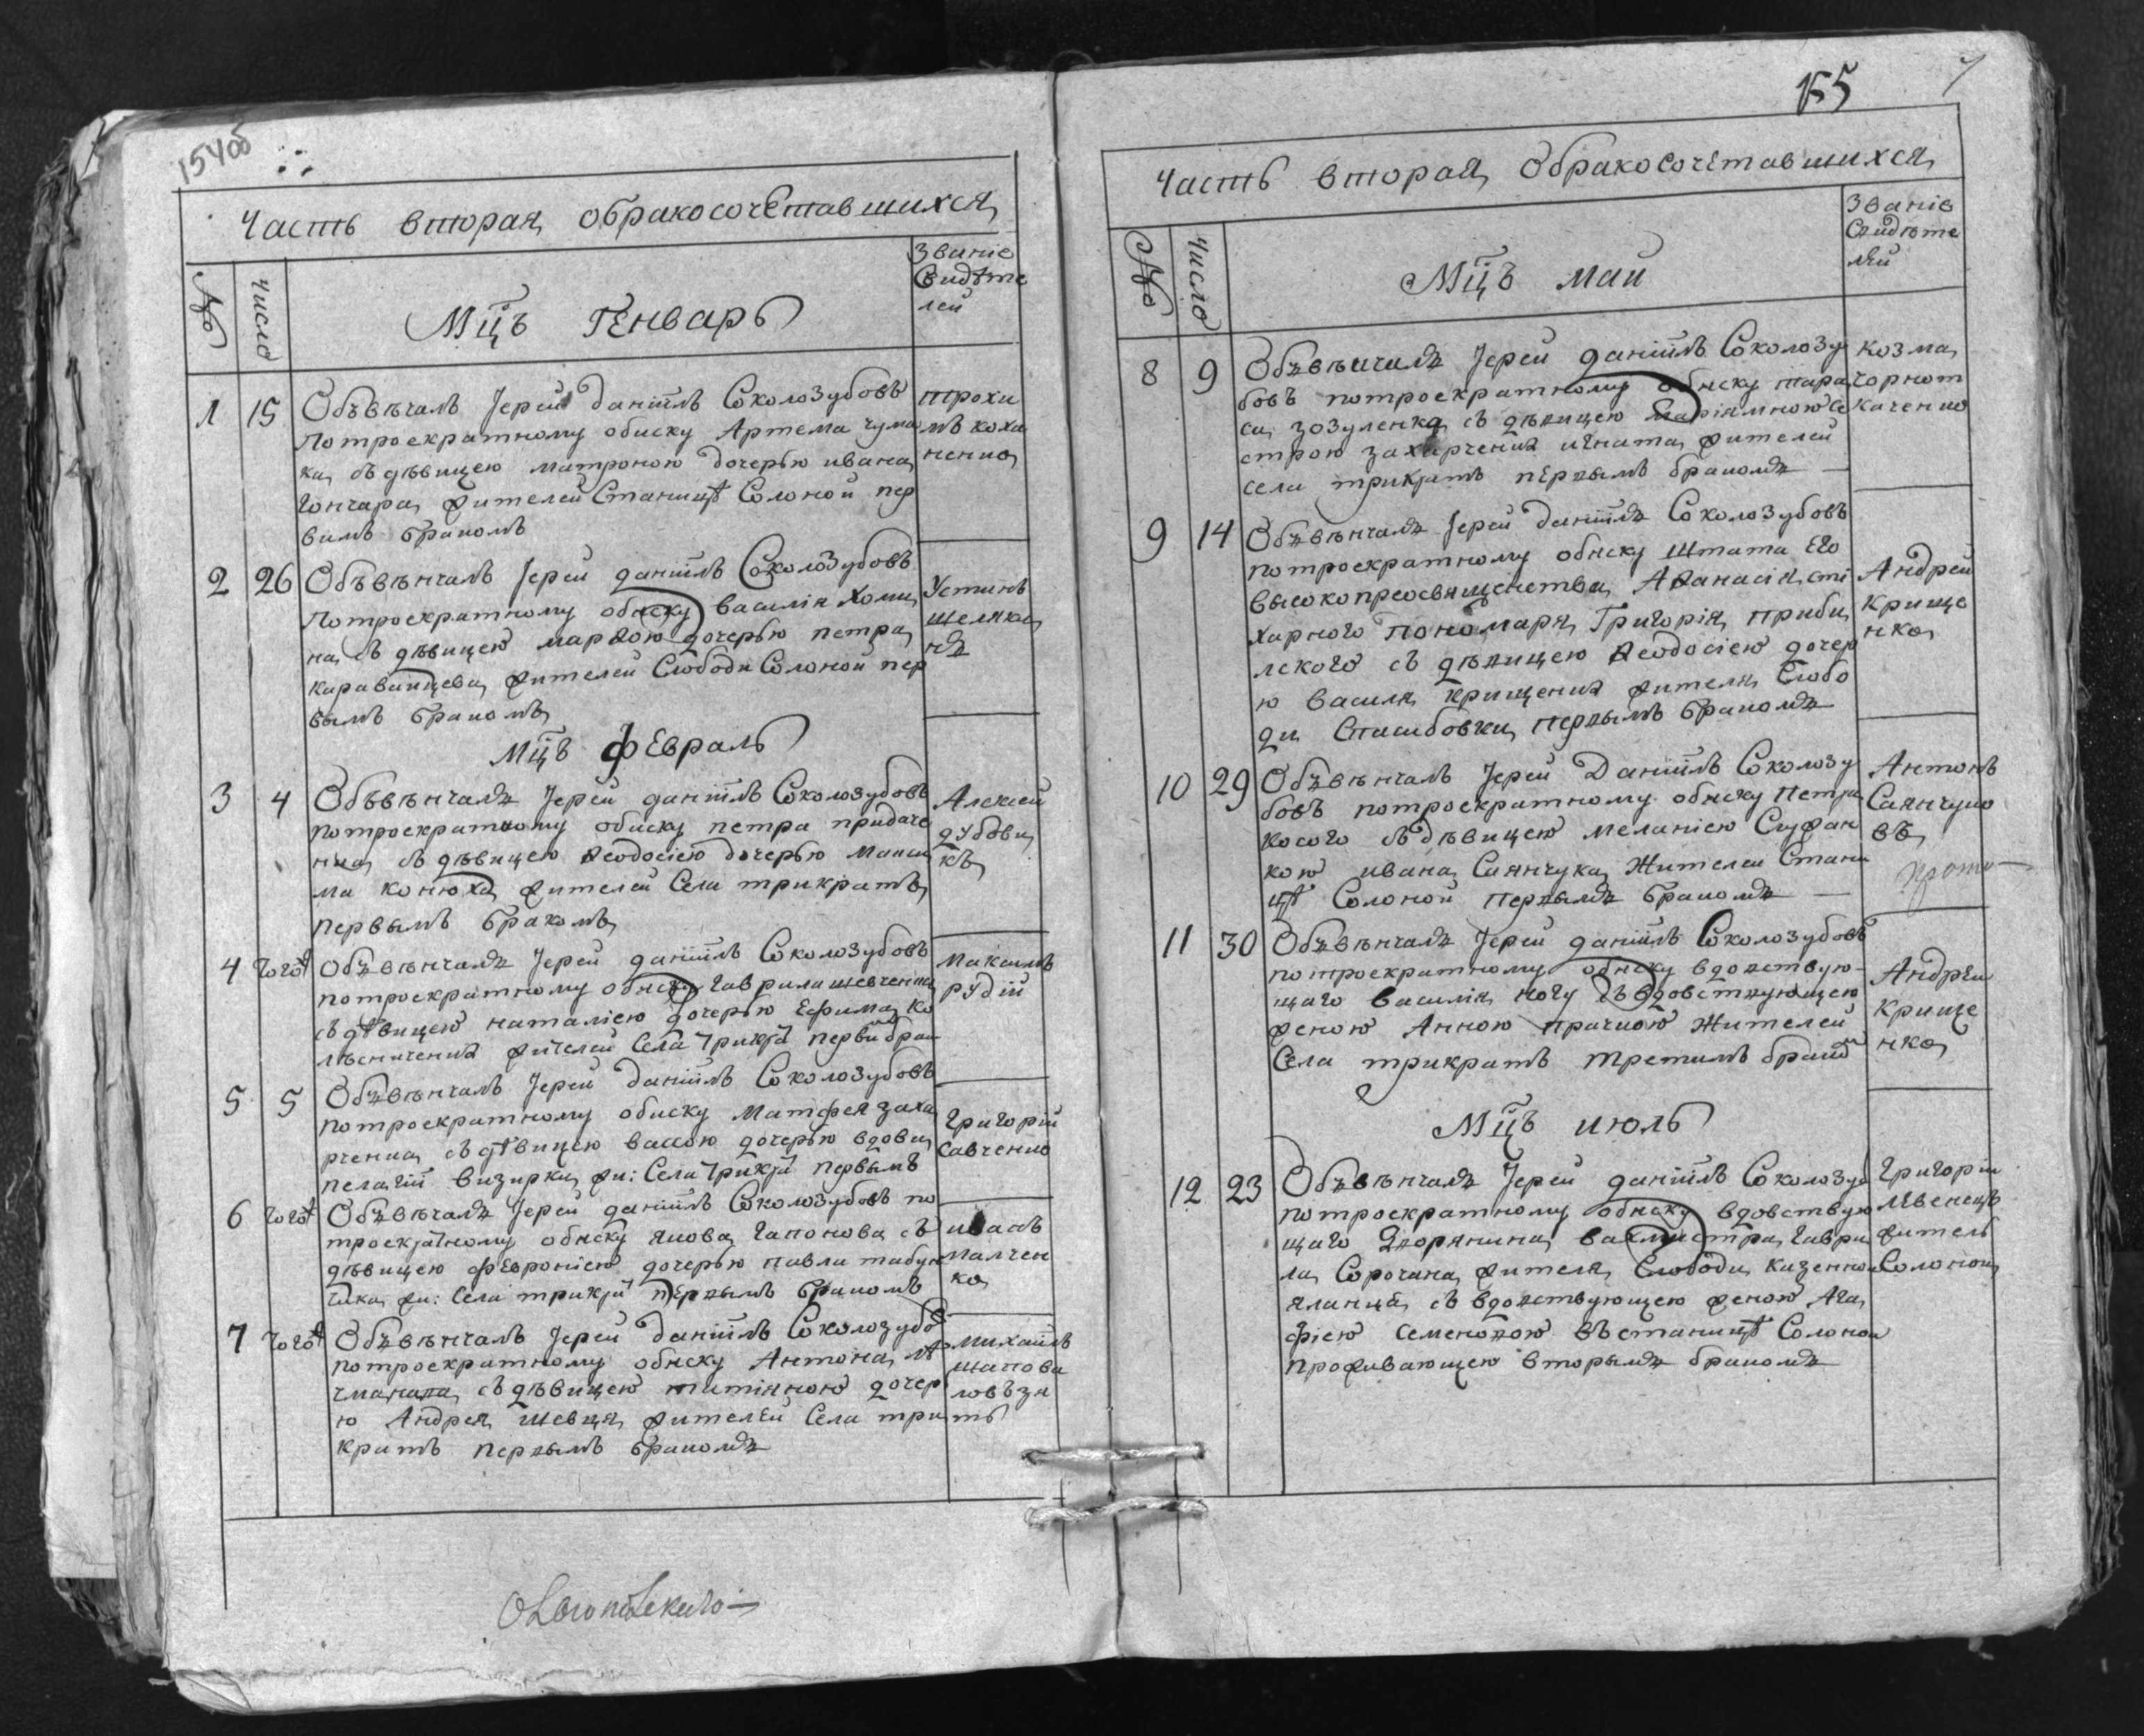 154об
Часть вторая обракосочетавшихся
№
число
Мцъ Генварь
Званіе
Свидѣте
лей
1 15 Обѣвѣчалъ Іерей даніилъ Соколозубовъ
потроекратному обиску Артема чума
ка, съ дѣвицею матроною дочерью ивана
гончара, жителей Станицѣ Солоной пер
вимъ бракомъ
трохи
мъ коха
ненко
2 26 Обѣвѣнчалъ Іерей даніилъ Соколозубовъ
потроекратному обиску василія хоми
на, съ дѣвицею марѳою дочерью петра
караванцева, жителей Слободи Солоной пер
вымъ бракомъ
Устинъ
щелкан
нъ
Мцъ февраль
3 4 Обѣвѣнчалъ Іерей даніилъ Соколозубовъ
потроекратному обиску петра придаче
нка, съ дѣвицею Ѳеодосіею дочерью макси
ма конюха, жителей Села трикратъ
первымъ бракомъ
Алексей
дубови
къ
4 тогожъ Обѣвѣнчалъ Іерей даніилъ Соколозубовъ
потроекратному обиску гаврила шевченка
съ дѣвицею наталіею дочерью Ефима ко
лѣсниченка жителей Села трикра первим брак
Максимъ
рудій
5 5 Обѣвѣнчалъ Іерей даніилъ Соколозубовъ
потроекратному обиску матфея заха
рченка, съ дѣвицею вассою дочерью вдови
пелагіи визирки, жи: Села трикра первымъ
григорій
Савченко
6 тогожъ Обѣвѣчалъ Іерей даніилъ Соколозубовъ по
троекратному обиску якова гапонова съ
дѣвицею февроніею дочерью павла табун
щика, жи: Села трикра первымъ бракомъ
иванъ
малчен
ко
7 тогожъ Обѣвѣнчалъ Іерей даніилъ Соколозубов
потроекратному обиску Антона
съ дѣвицею татіяною дочер
ю Андрея шевця, жителей Села три
кратъ первымъ бракомъ
михаилъ
шапова
ловъ зя
ть
155
Часть вторая обракосочетавшихся
№
число
Мцъ маи
Званіе
Свидѣте
лей
8 9 Обѣвѣнчалъ Іерей даніилъ Соколозу
бовъ потроекратному обиску тара
са, зозуленка, съ дѣвицею Маріямною се
строю захарченка игната, жителей
села трикратъ первымъ бракомъ —
козма
чорнот
каченко
9 14 Обѣвѣнчалъ Іерей даніилъ Соколозубовъ
потроекратному обиску штата его
высокопреосвященства, Аѳанасія, сти
харного пономаря, Григорія, приби
лского съ дѣвицею Ѳеодосіею дочер
ю василя крищенка жителя, Слобо
ди Спасибовки, первымъ бракомъ
Андрей
крище
нко
10 29 Обѣвѣнчалъ Іерей Даніилъ Соколозу
бовъ потроекратному обиску петра
косого съ дѣвицею меланіею Стефан
кою ивана, Саянчука, жителей Стани
цѣ Солоной первымъ бракомъ —
Антонъ
Саянчуко
въ
11 30 Обѣвѣнчалъ Іерей даніилъ Соколозубовъ
потроекратному обиску вдовствую-
щаго василія, ногу съ вдовствующею
женою Анною прачкою жителей
Села трикратъ третимъ браком
Андрей
Крище
нко
Мцъ июль
12 23 Обѣвѣнчалъ Іерей даніилъ Соколозуб
потроекратному обиску вдовствую
щаго дворянина, вахмистра, гаври
ла, Сорочана, жителя, Слободи, казенной
яланца, съ вдовствующею женою Ага
фіею семеновою въ станицѣ Солоной
проживающею вторымъ бракомъ
григорій
левенецъ
житель
Солоной